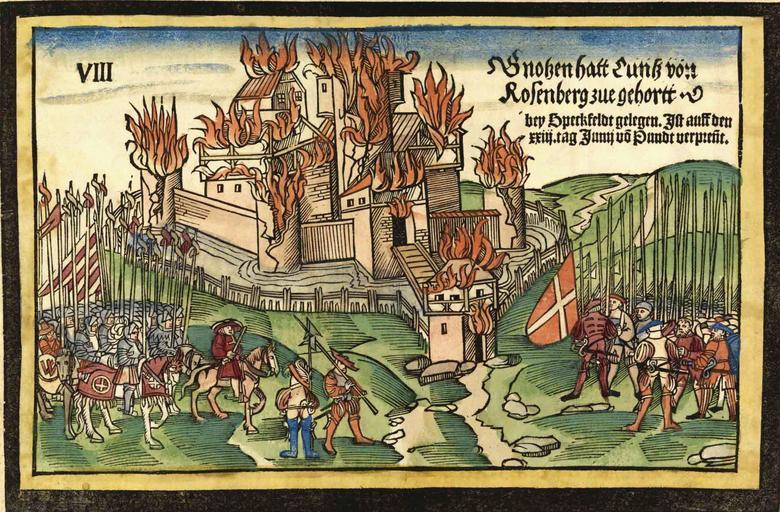 VIII
Gnotzen hatt Cuntz von
Rosenberg zue gehortt
bey Speckfeldt gelegen. Ist auff den
xxiij. tag Junij vō Pundt verpreñt.